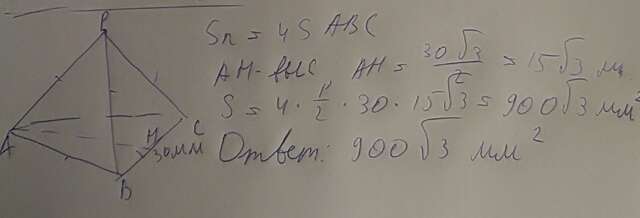 P
A
B
C
H
30мм
Sп = 4 S ABC
AH - выс AH = 30√3/2 = 15√3 мм
S = 4 · 1/2 · 30 · 15√3 = 900√3 мм²
Ответ: 900√3 мм²